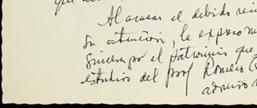 que
Al acusar el debido reci
su atención, le expreso m
sincero por el patrocinio que
estudios del prof Romero (